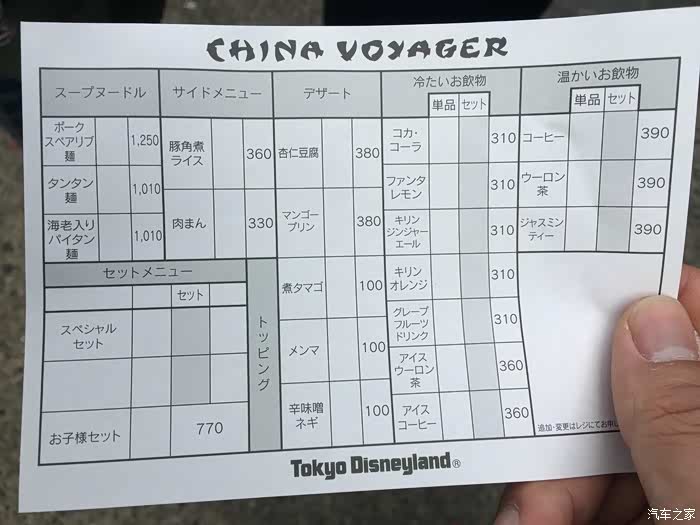 CHINA VOYAGER
スープヌードル
ポーク
スペアリブ
麺
1,250
タンタン
麺
1,010
海老入り
パイタン
麺
1,010
サイドメニュー
豚角煮
ライス
360
肉まん
330
デザート
杏仁豆腐
380
マンゴー
プリン
380
トッピング
煮タマゴ
100
メンマ
100
辛味噌
ネギ
100
セットメニュー
セット
スペシャル
セット
お子様セット
770
冷たいお飲物
単品 セット
コカ・
コーラ
310
ファンタ
レモン
310
キリン
ジンジャー
エール
310
キリン
オレンジ
310
グレープ
フルーツ
ドリンク
310
アイス
ウーロン
茶
360
アイス
コーヒー
360
温かいお飲物
単品 セット
コーヒー
390
ウーロン
茶
390
ジャスミン
ティー
390
追加・変更はレジにてお申し
Tokyo Disneyland®
汽车之家